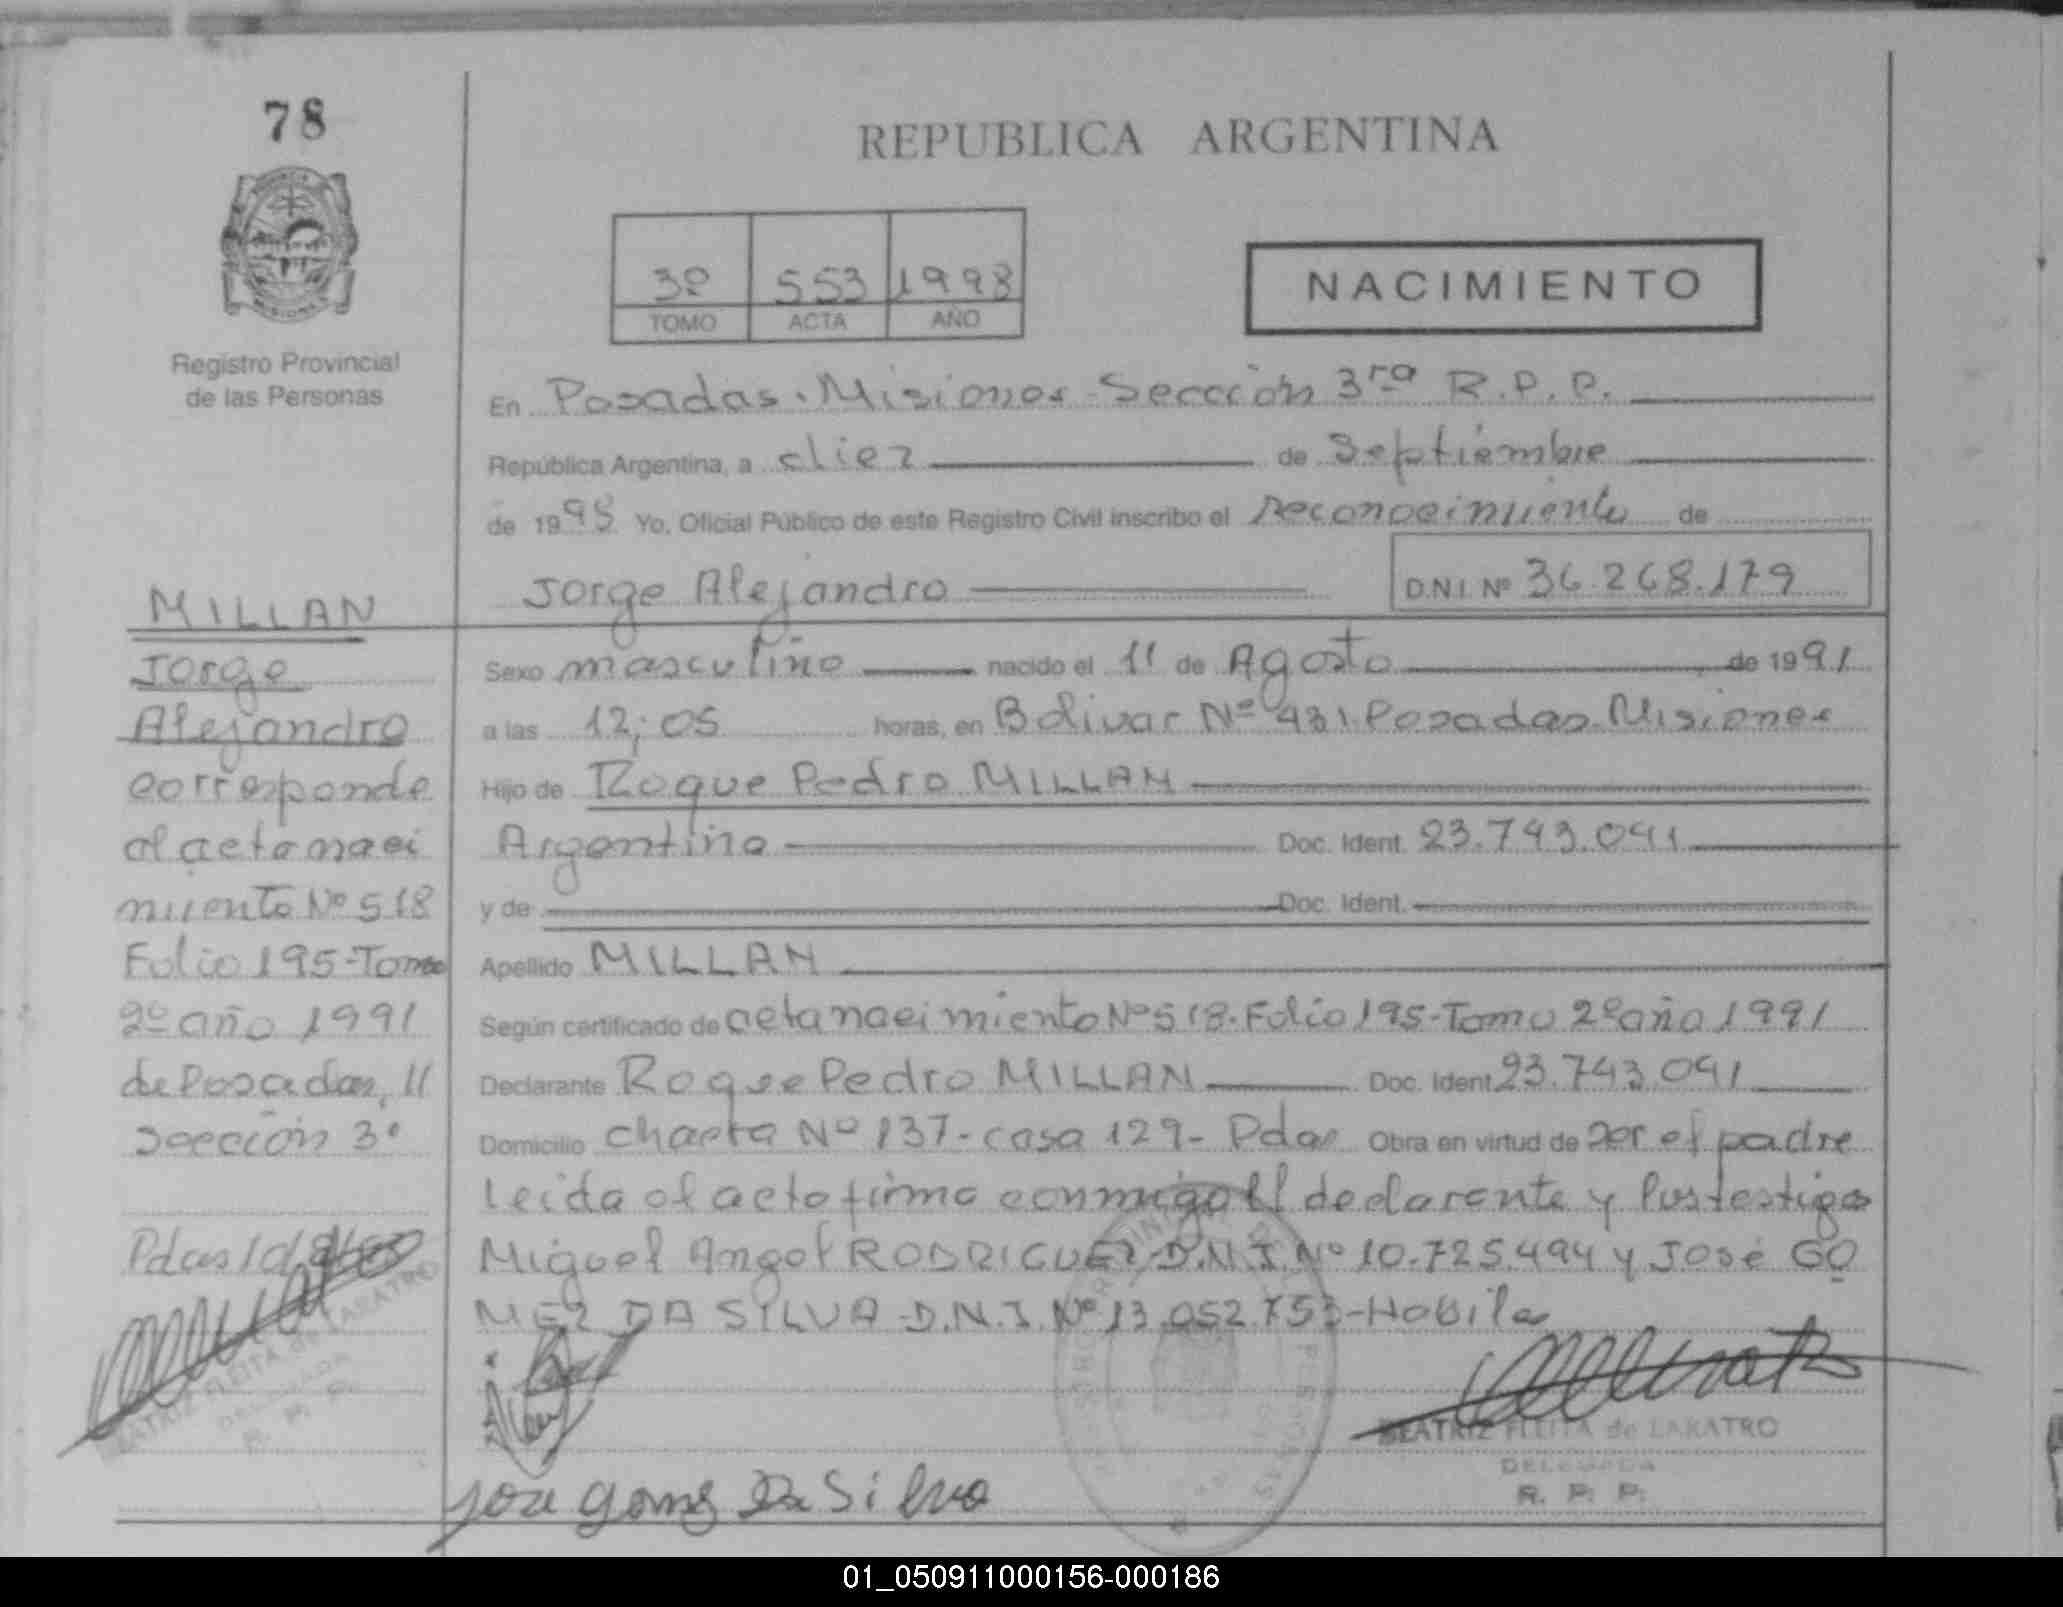 78
REPUBLICA ARGENTINA
3º 553 1998
TOMO ACTA AÑO
NACIMIENTO
Registro Provincial
de las Personas
En Posadas. Misiones - Sección 3ra R.P.P.
República Argentina, a diez de Septiembre
de 1998 Yo, Oficial Público de este Registro Civil inscribo el Reconocimiento de
Jorge Alejandro D.N.I. Nº 36.268.179
MILLAN
Jorge
Alejandro
corresponde
al acta naci
miento Nº 518
Folio 195-Tomo
2º año 1991
de Posadas,
Sección 3º
Pdas
BEATRIZ FLEITA de LARATRO
DELEGADA
R. P. P.
Sexo masculino nacido el 11 de Agosto de 1991
a las 12:05 horas, en Bolivar Nº 431 Posadas. Misiones
Hijo de Roque Pedro MILLAN
Argentino Doc. Ident. 23.743.041
y de Doc. Ident.
Apellido MILLAN
Según certificado de acta nacimiento Nº 518. Folio 195-Tomo 2º año 1991
Declarante Roque Pedro MILLAN Doc. Ident 23.743.041
Domicilio chacra Nº 137-casa 129- Pdas Obra en virtud de ser el padre
Leida el acta firma conmigo el declarante y los testigos
Miguel Angel RODRIGUEZ-D.N.I. Nº 10.725.494 y José GO
MEZ DA SILVA-D.N.I. Nº 13.052.753-Habiles
Jose Gomez Da Silva
BEATRIZ FLEITA de LARATRO
DELEGADA
R. P. P.
01_050911000156-000186